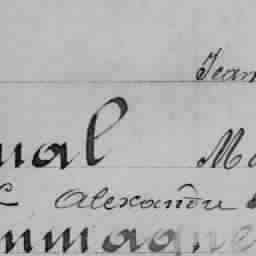 Jean
ual Ma
Alexandre
mmagne